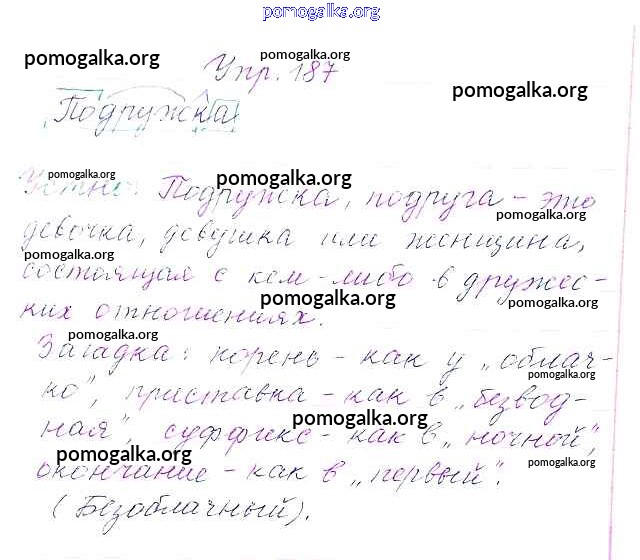 pomogalka.org
pomogalka.org
pomogalka.org
Упр. 187
pomogalka.org
Подружка
pomogalka.org
pomogalka.org
Устно: Подружка, подруга - это
pomogalka.org
девочка, девушка или женщина,
pomogalka.org
состоящая с кем-либо в дружес-
pomogalka.org
pomogalka.org
ких отношениях.
pomogalka.org
Загадка: корень - как у „облач-
pomogalka.org
ко", приставка - как в „безвод-
pomogalka.org
ная", суффикс - как в „ночной",
pomogalka.org
pomogalka.org
окончание - как в „первый".
(Безоблачный).